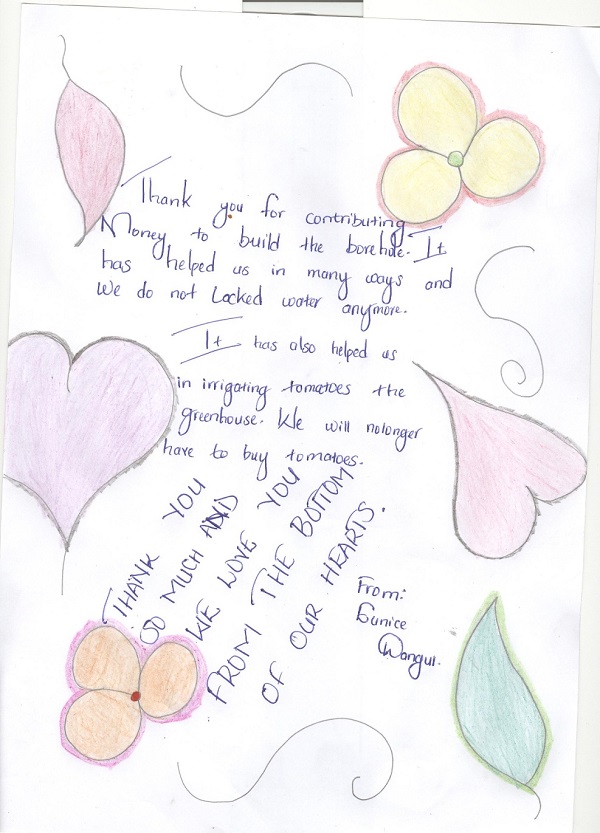 Thank you for contributing
Money to build the borehole. It
has helped us in many ways and
we do not Lacked water anymore.
It has also helped us
in irrigating tomatoes the
greenhouse. We will nolonger
have to buy tomatoes.
THANK YOU
SO MUCH AND
WE LOVE YOU
FROM THE BOTTOM
OF OUR HEARTS.
From:
Eunice
Wangui.